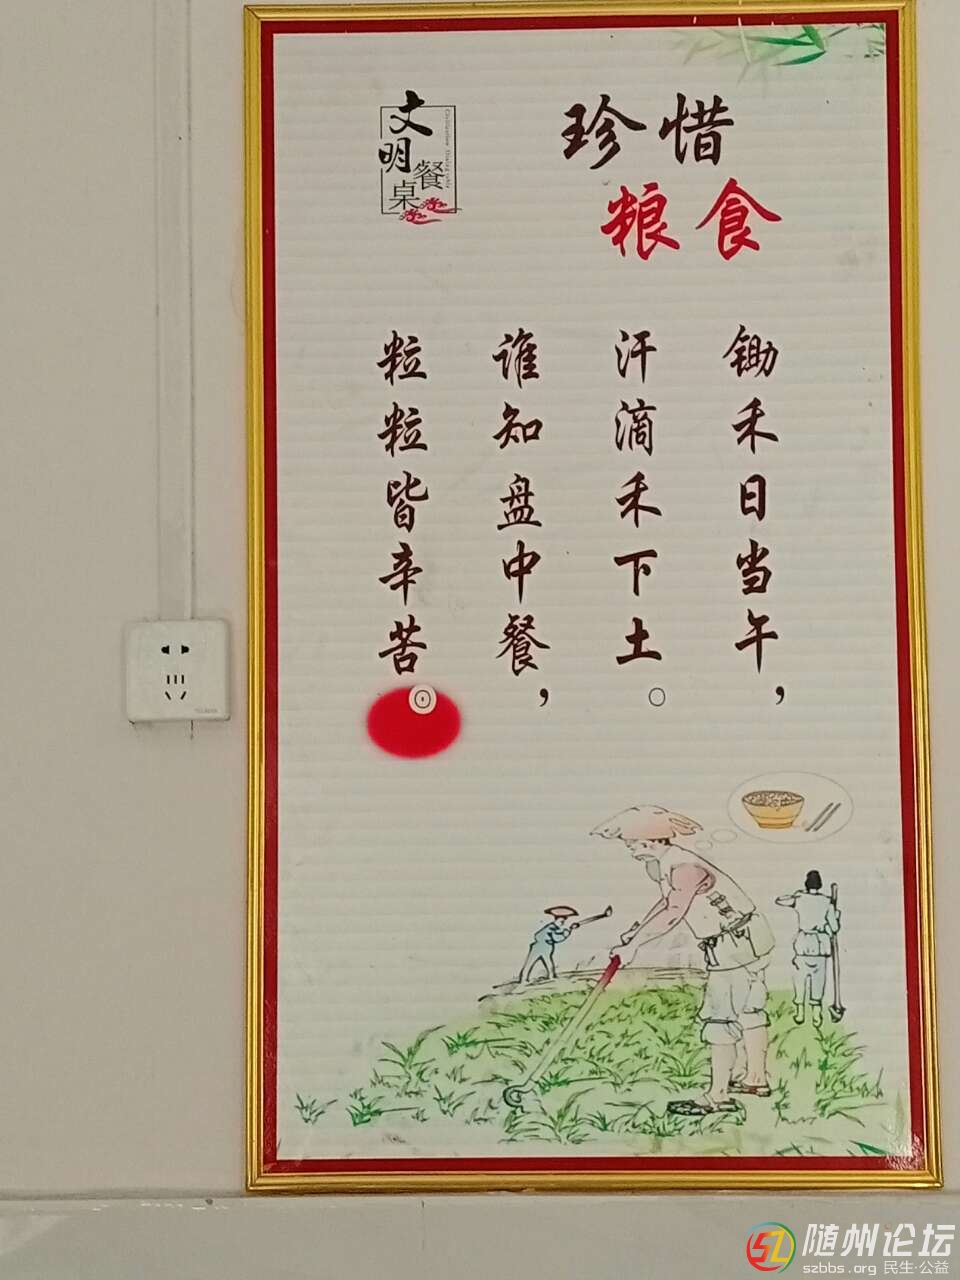 珍惜
粮食
文明
餐桌
锄禾日当午，
汗滴禾下土。
谁知盘中餐，
粒粒皆辛苦
随州论坛
szbbs.org 民生·公益